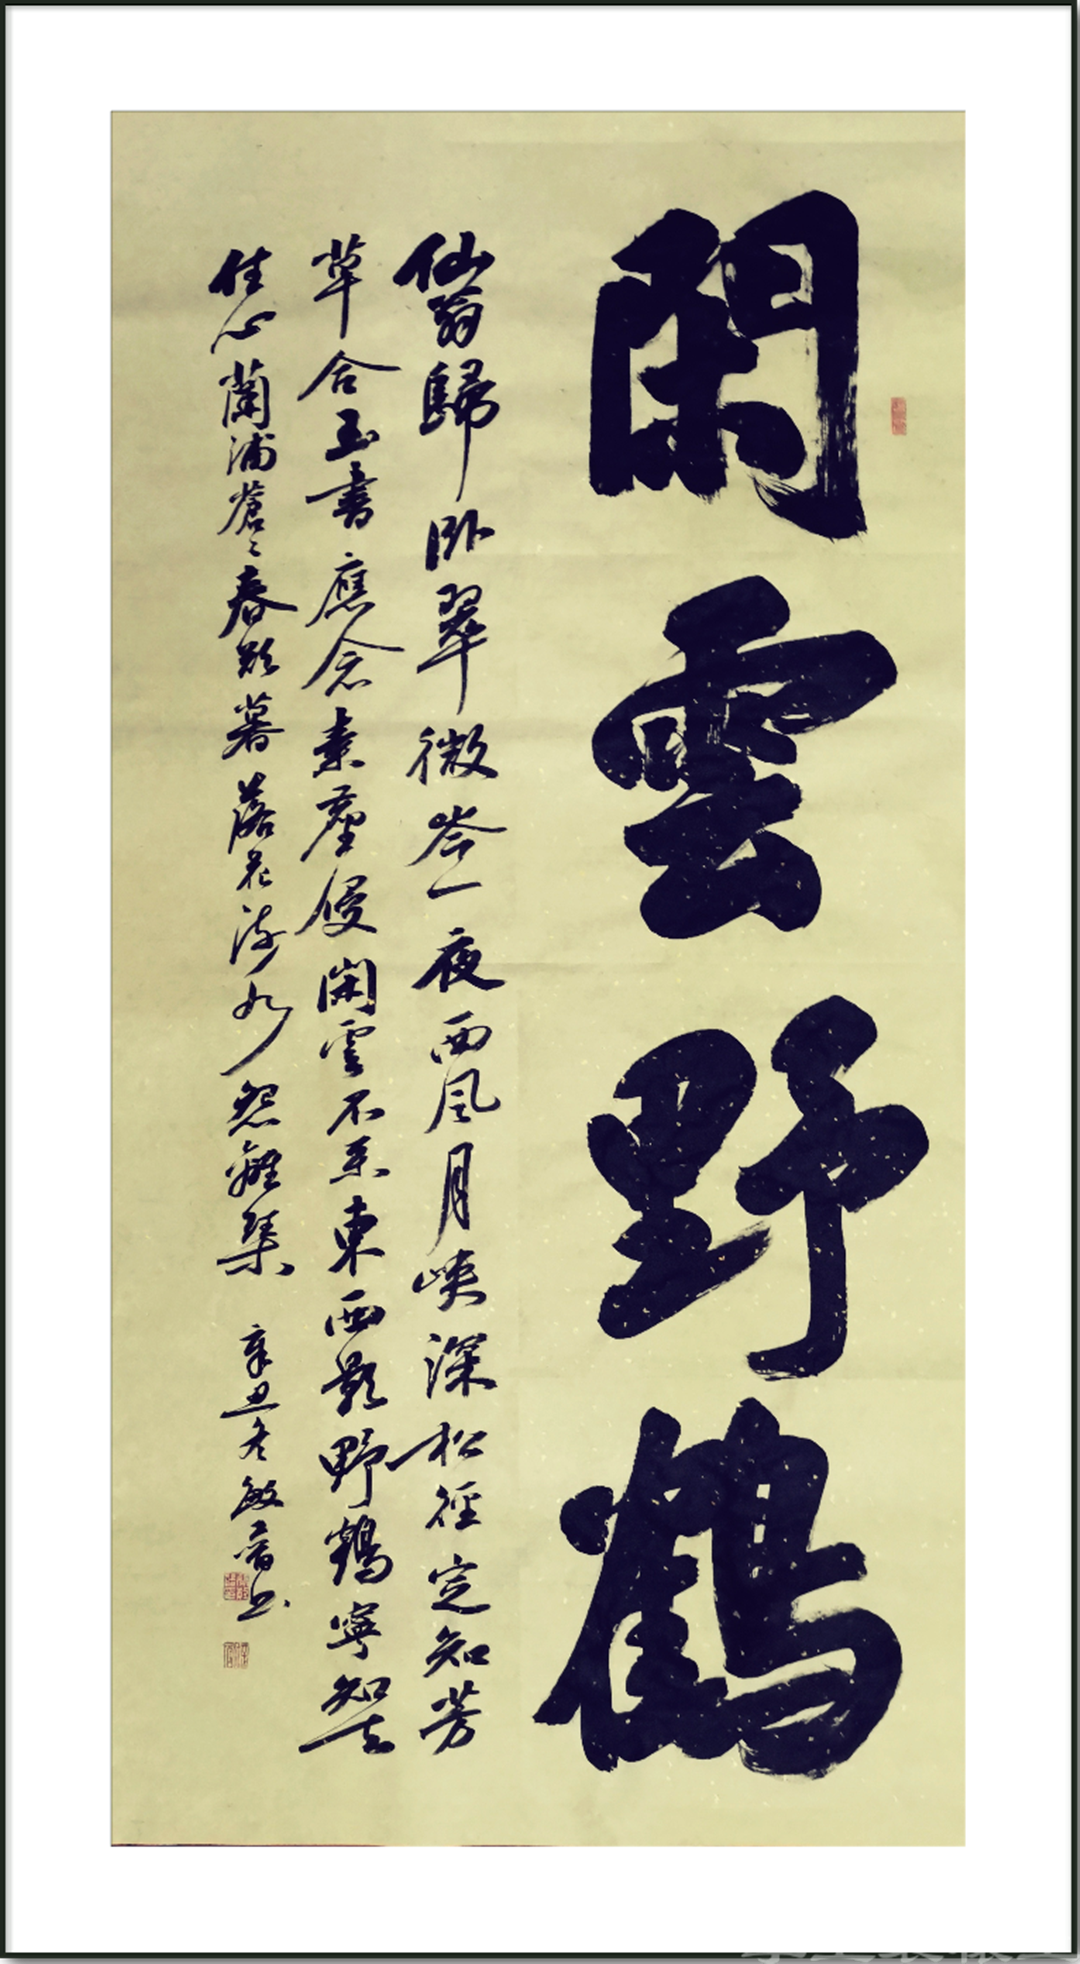 閑雲野鶴
仙翁歸卧翠微岑一夜西風月峡深松徑定知芳
草合玉書應念素塵侵閑雲不系東西影野鶴寧知去
住心蘭浦蒼蒼春欲暮落花流水怨離琴
辛丑冬敏書